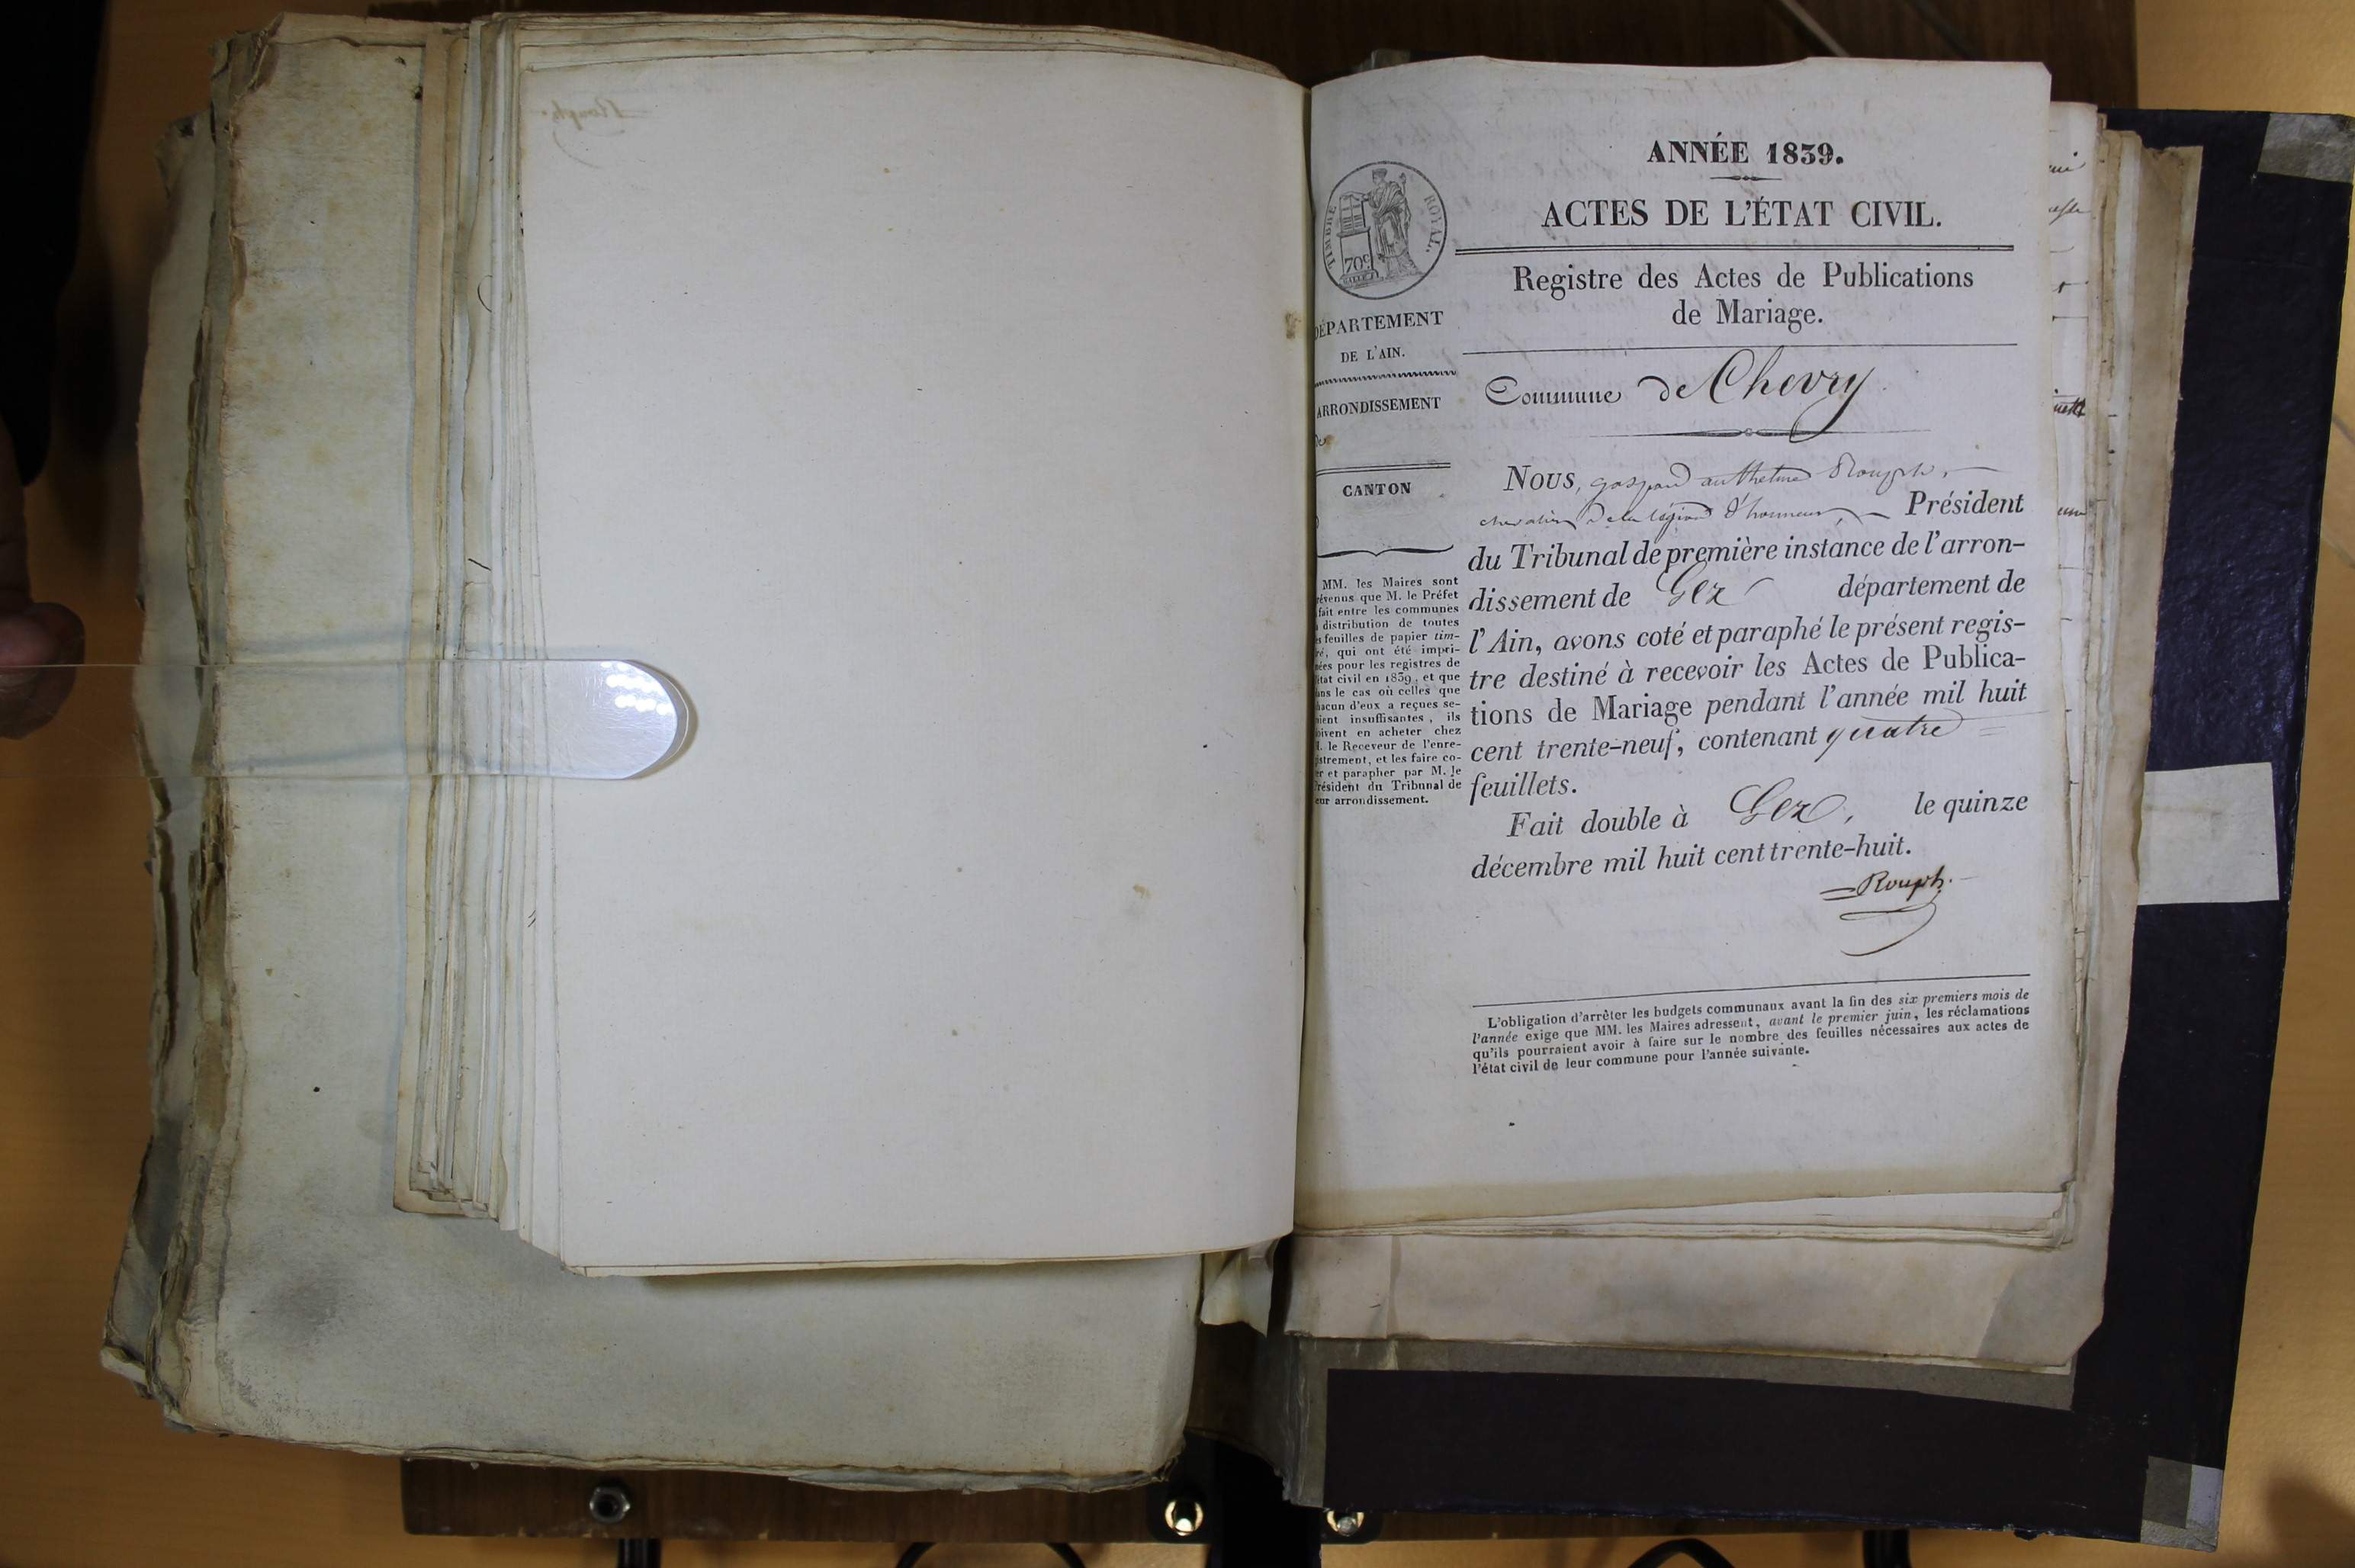 ANNÉE 1839.
ACTES DE L'ÉTAT CIVIL.
Registre des Actes de Publications
de Mariage.
Commune de Chevry
Nous, gaspard anthelme Rouph,
chevalier de la légion d'honneur, Président
du Tribunal de première instance de l'arron-
dissement de Gex département de
l'Ain, avons coté et paraphé le présent regis-
tre destiné à recevoir les Actes de Publica-
tions de Mariage pendant l'année mil huit
cent trente-neuf, contenant quatre
feuillets.
Fait double à Gex, le quinze
décembre mil huit cent trente-huit.
Rouph
L'obligation d'arrêter les budgets communaux avant la fin des six premiers mois de
l'année exige que MM. les Maires adressent, avant le premier juin, les réclamations
qu'ils pourraient avoir à faire sur le nombre des feuilles nécessaires aux actes de
l'état civil de leur commune pour l'année suivante.
TIMBRE ROYAL
70c
DÉPARTEMENT
DE L'AIN.
ARRONDISSEMENT
de
CANTON
MM. les Maires sont
révenus que M. le Préfet
fait entre les communes
distribution de toutes
s feuilles de papier tim-
ré, qui ont été impri-
ées pour les registres de
état civil en 1839, et que
ans le cas où celles que
hacun d'eux a reçues se-
aient insuffisantes, ils
oivent en acheter chez
M. le Receveur de l'enre-
istrement, et les faire co-
er et parapher par M. le
Président du Tribunal de
eur arrondissement.